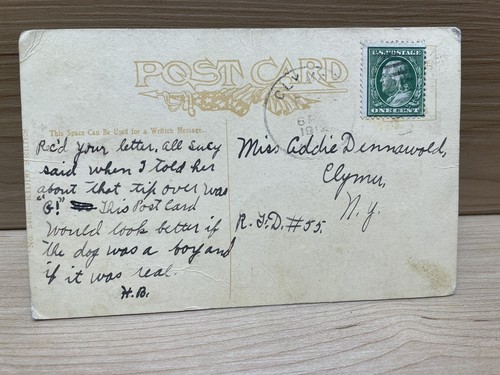 POST CARD
This Space Can Be Used for a Written Message.
U.S. POSTAGE
ONE CENT
CLY
6 P
191
Rec'd your letter, all Suey
said when I told her
about that tip over was
"G!" This Post Card
Would look better if
the dog was a boy and
if it was real.
H.B.
Miss Addie Dennawold,
Clymer,
N.Y.
R.F.D. #55.